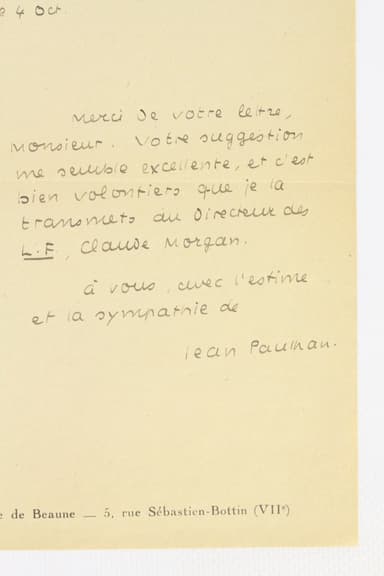 e 4 Oct
Merci de votre lettre,
Monsieur. Votre suggestion
me semble excellente, et c'est
bien volontiers que je la
transmets au Directeur des
L.F, Claude Morgan.
à vous, avec l'estime
et la sympathie de
Jean Paulhan.
e de Beaune — 5, rue Sébastien-Bottin (VIIᵉ)